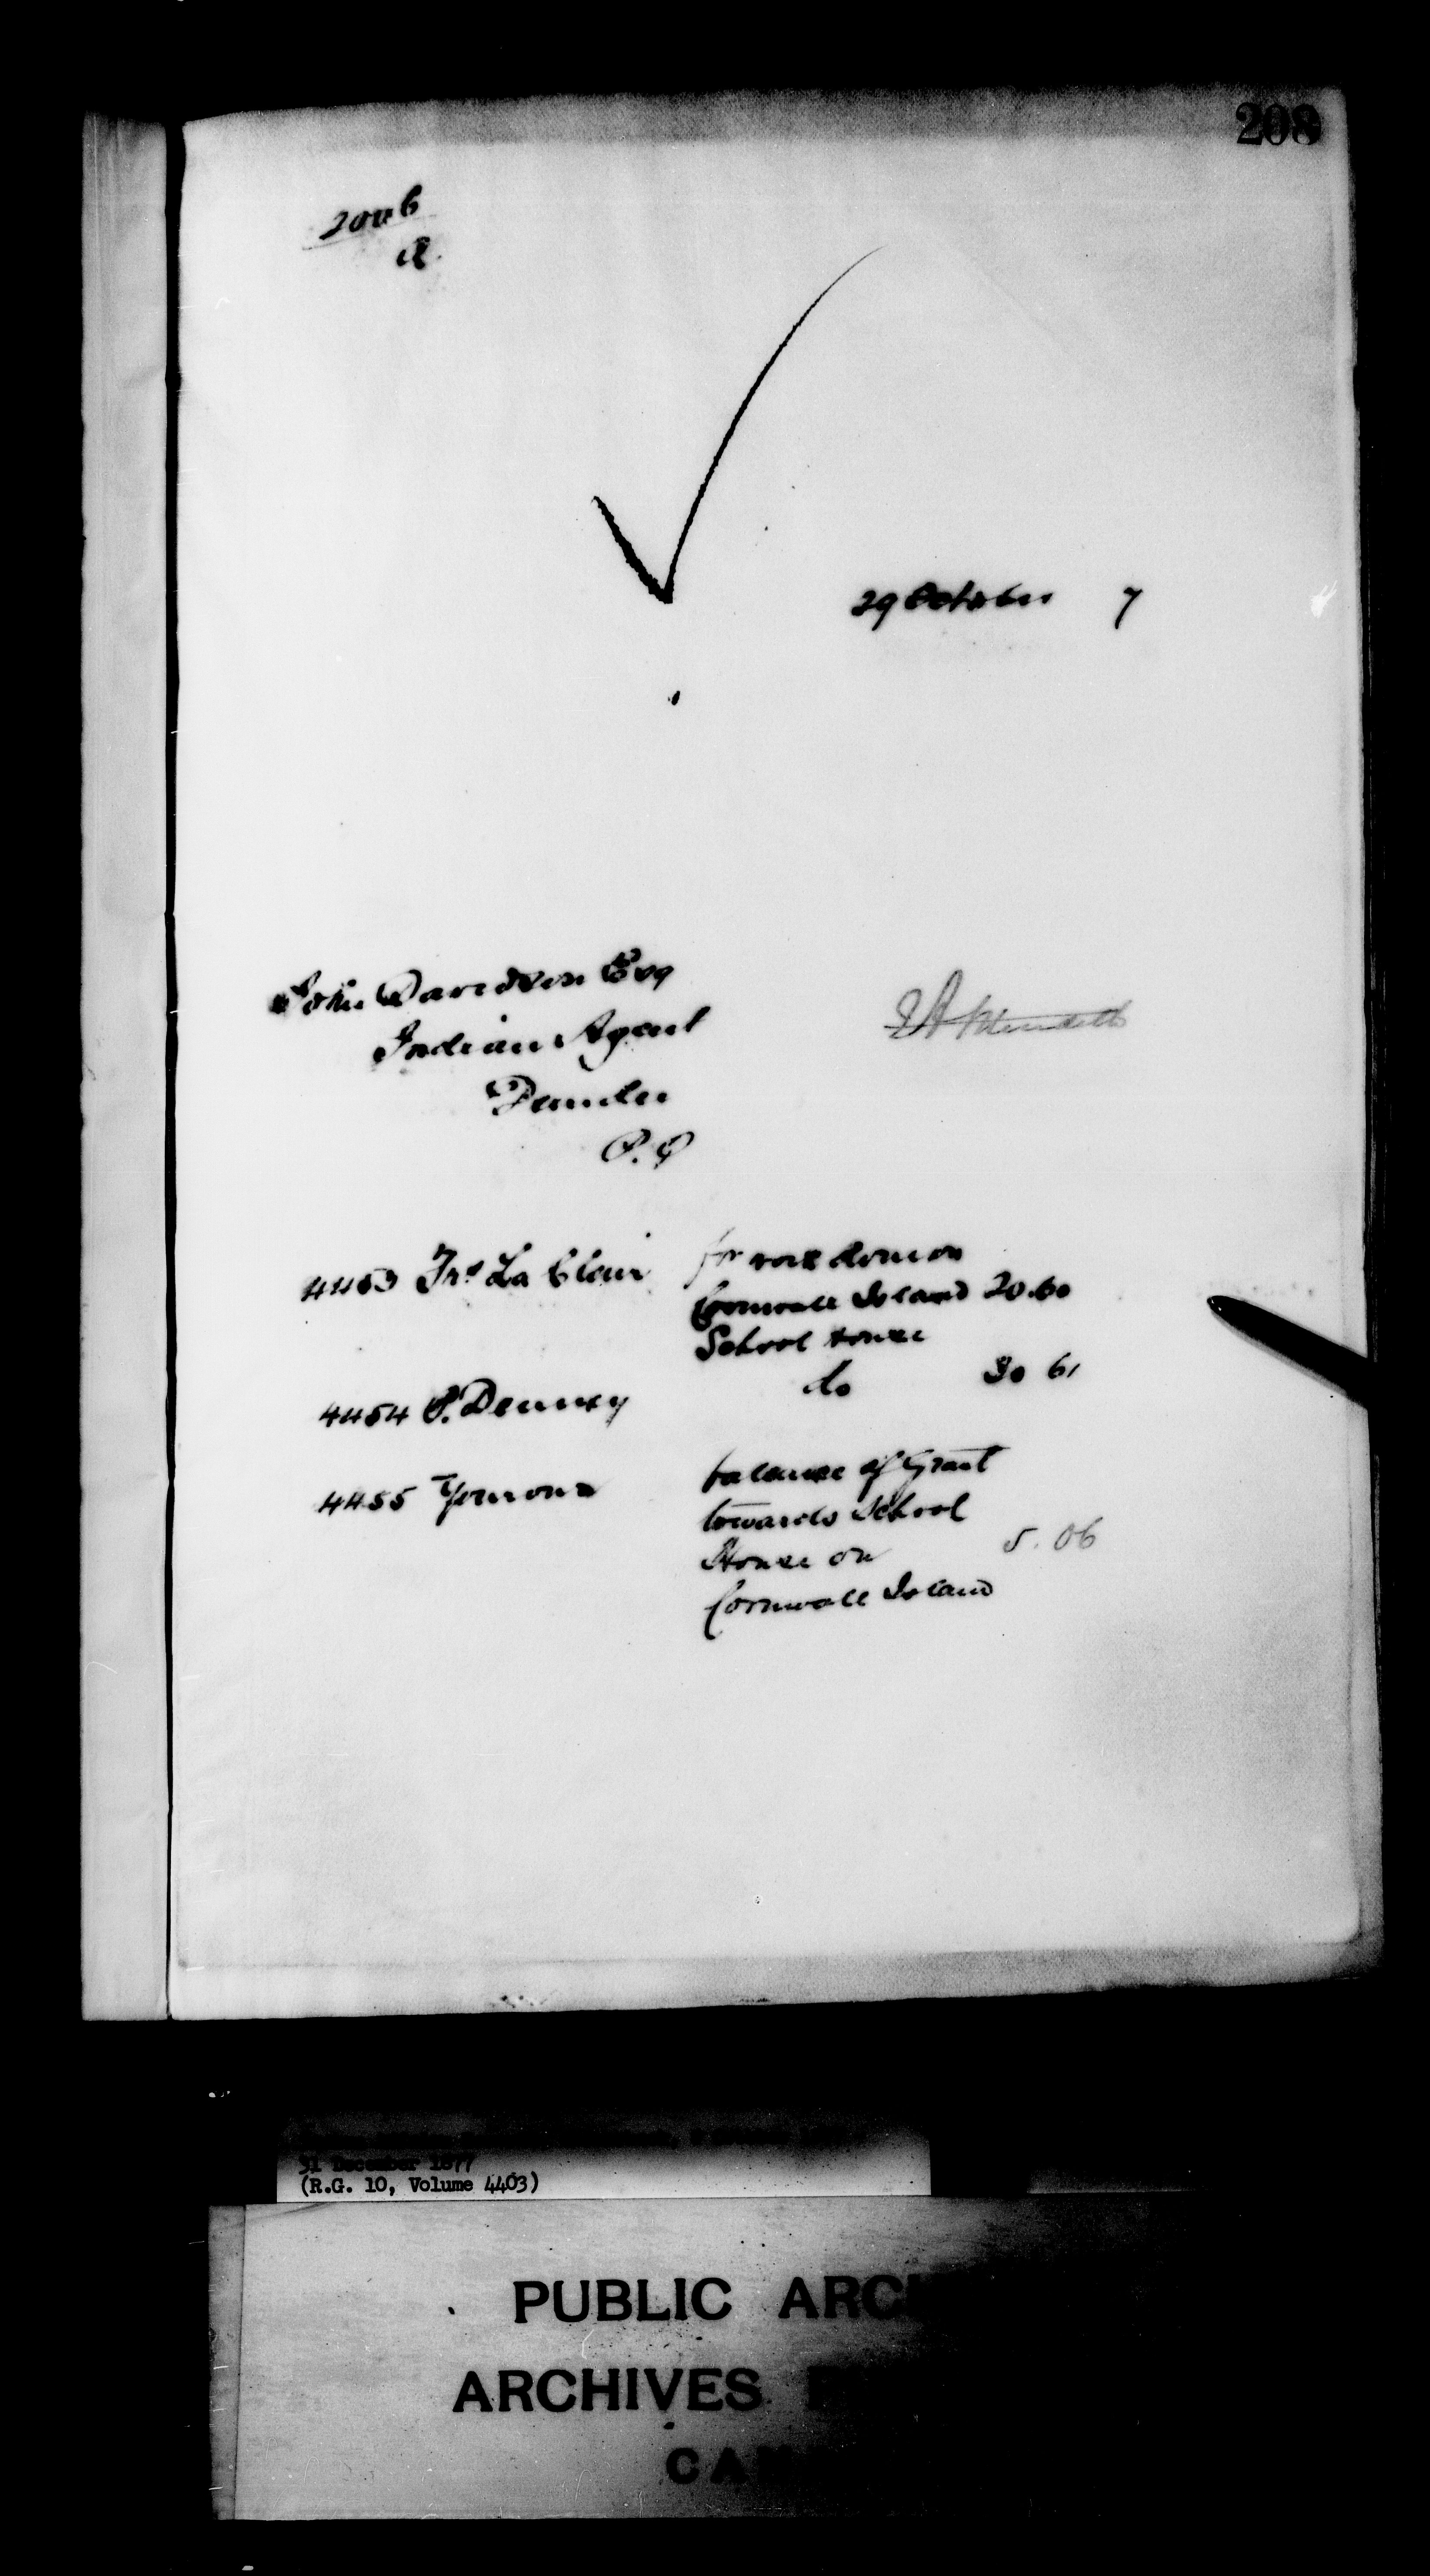 208
2006
a
29 October 7
John Davidson Esq
Indian Agent
Dundee
P. Q
E A Meredith
4453 Frs La Cleur for work done on
Cornwall Island 20.60
School House
4454 P. Denney do 30 61
4455 Yourown balance of Grant
towards School
House on 5.06
Cornwall Island
31 December 1877
(R.G. 10, Volume 4403)
PUBLIC ARC
ARCHIVES
CAN